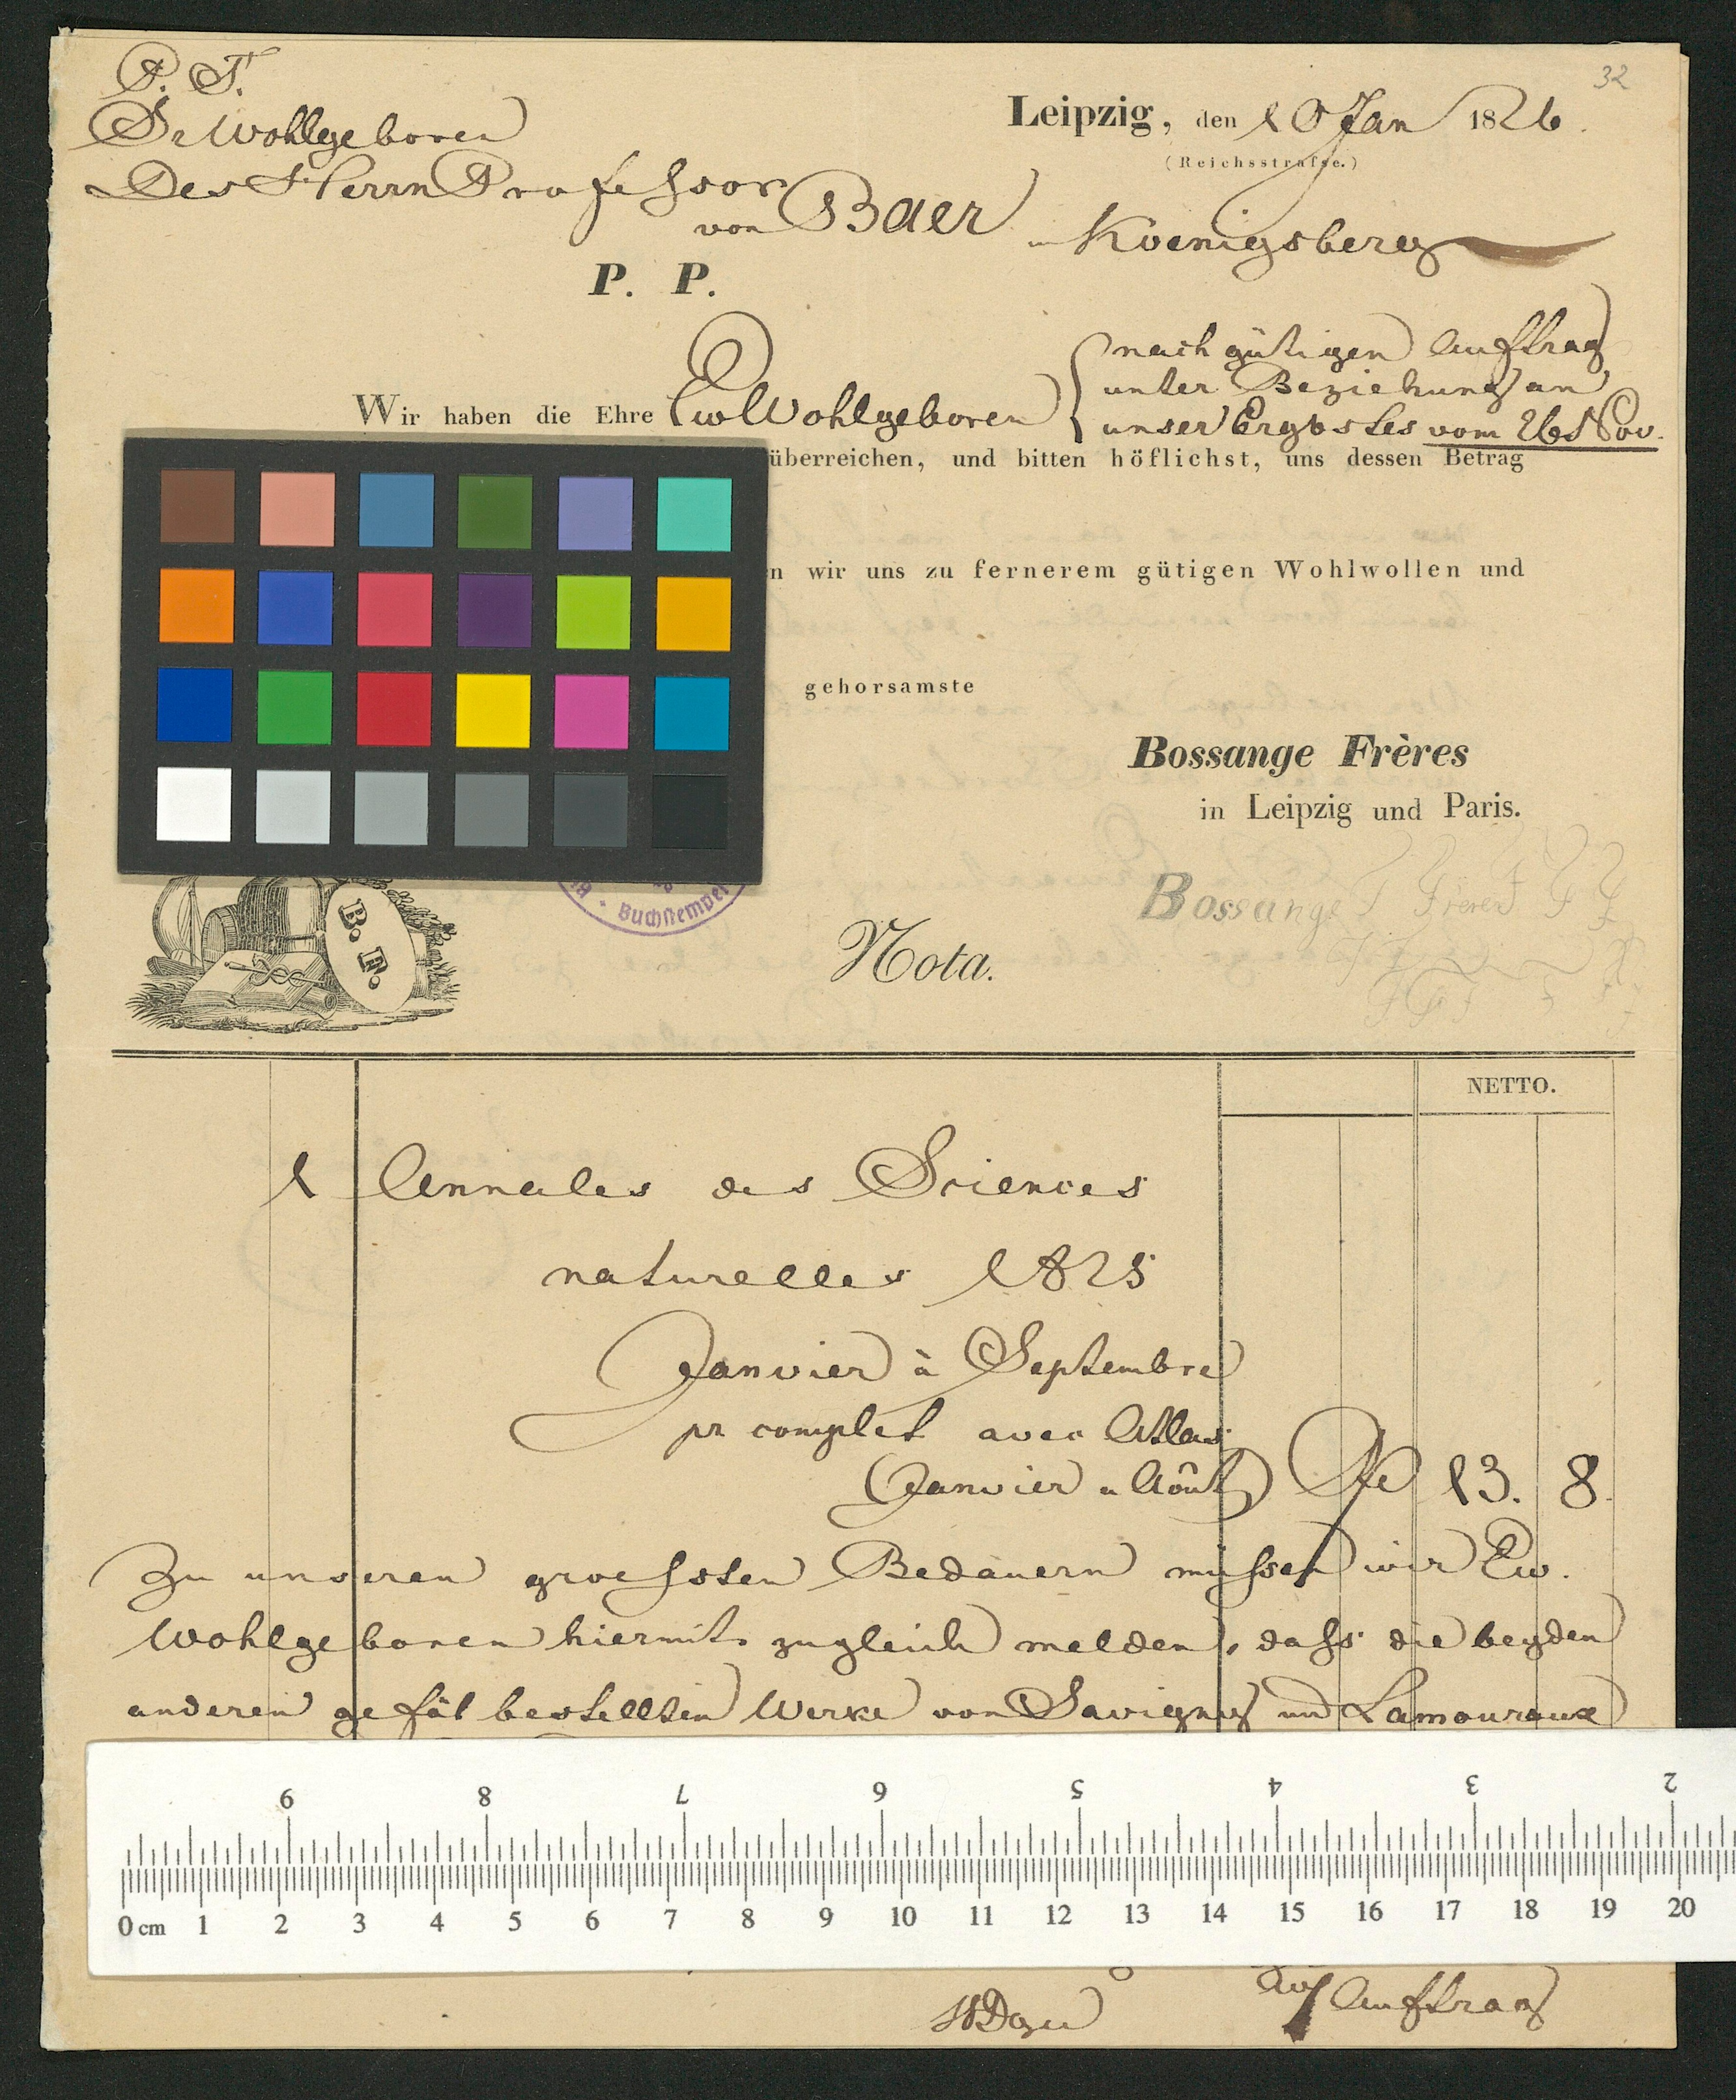 32
P. T.
Sr Wohlgeboren
Des Herrn Professor
von Baer
in Koenigsberg
Leipzig, den 10 Jan 1826.
(Reichsstraſse.)
P. P.
Wir haben die Ehre Ew Wohlgeboren
nach gütigen Auftrag
unter Beziehung an
unser Ergbstes vom 26 Nov.
überreichen, und bitten höflichst, uns dessen Betrag
n wir uns zu fernerem gütigen Wohlwollen und
gehorsamste
Bossange Frères
in Leipzig und Paris.
Bossange Freres
Buchstempel
B. F.
Nota.
NETTO.
1 Annales des Sciences
naturelles 1825
Janvier à Septembre
pr complet avec Atlas
(Janvier a Août) 13. 8.
Zu unseren groeſsten Bedauern müſsen wir Ew.
Wohlgeboren hiermit zugleich melden, daſs die beyden
anderen gefäl bestellten Werke von Savigny und Lamouroux
0 cm 1 2 3 4 5 6 7 8 9 10 11 12 13 14 15 16 17 18 19 20
Auftrag